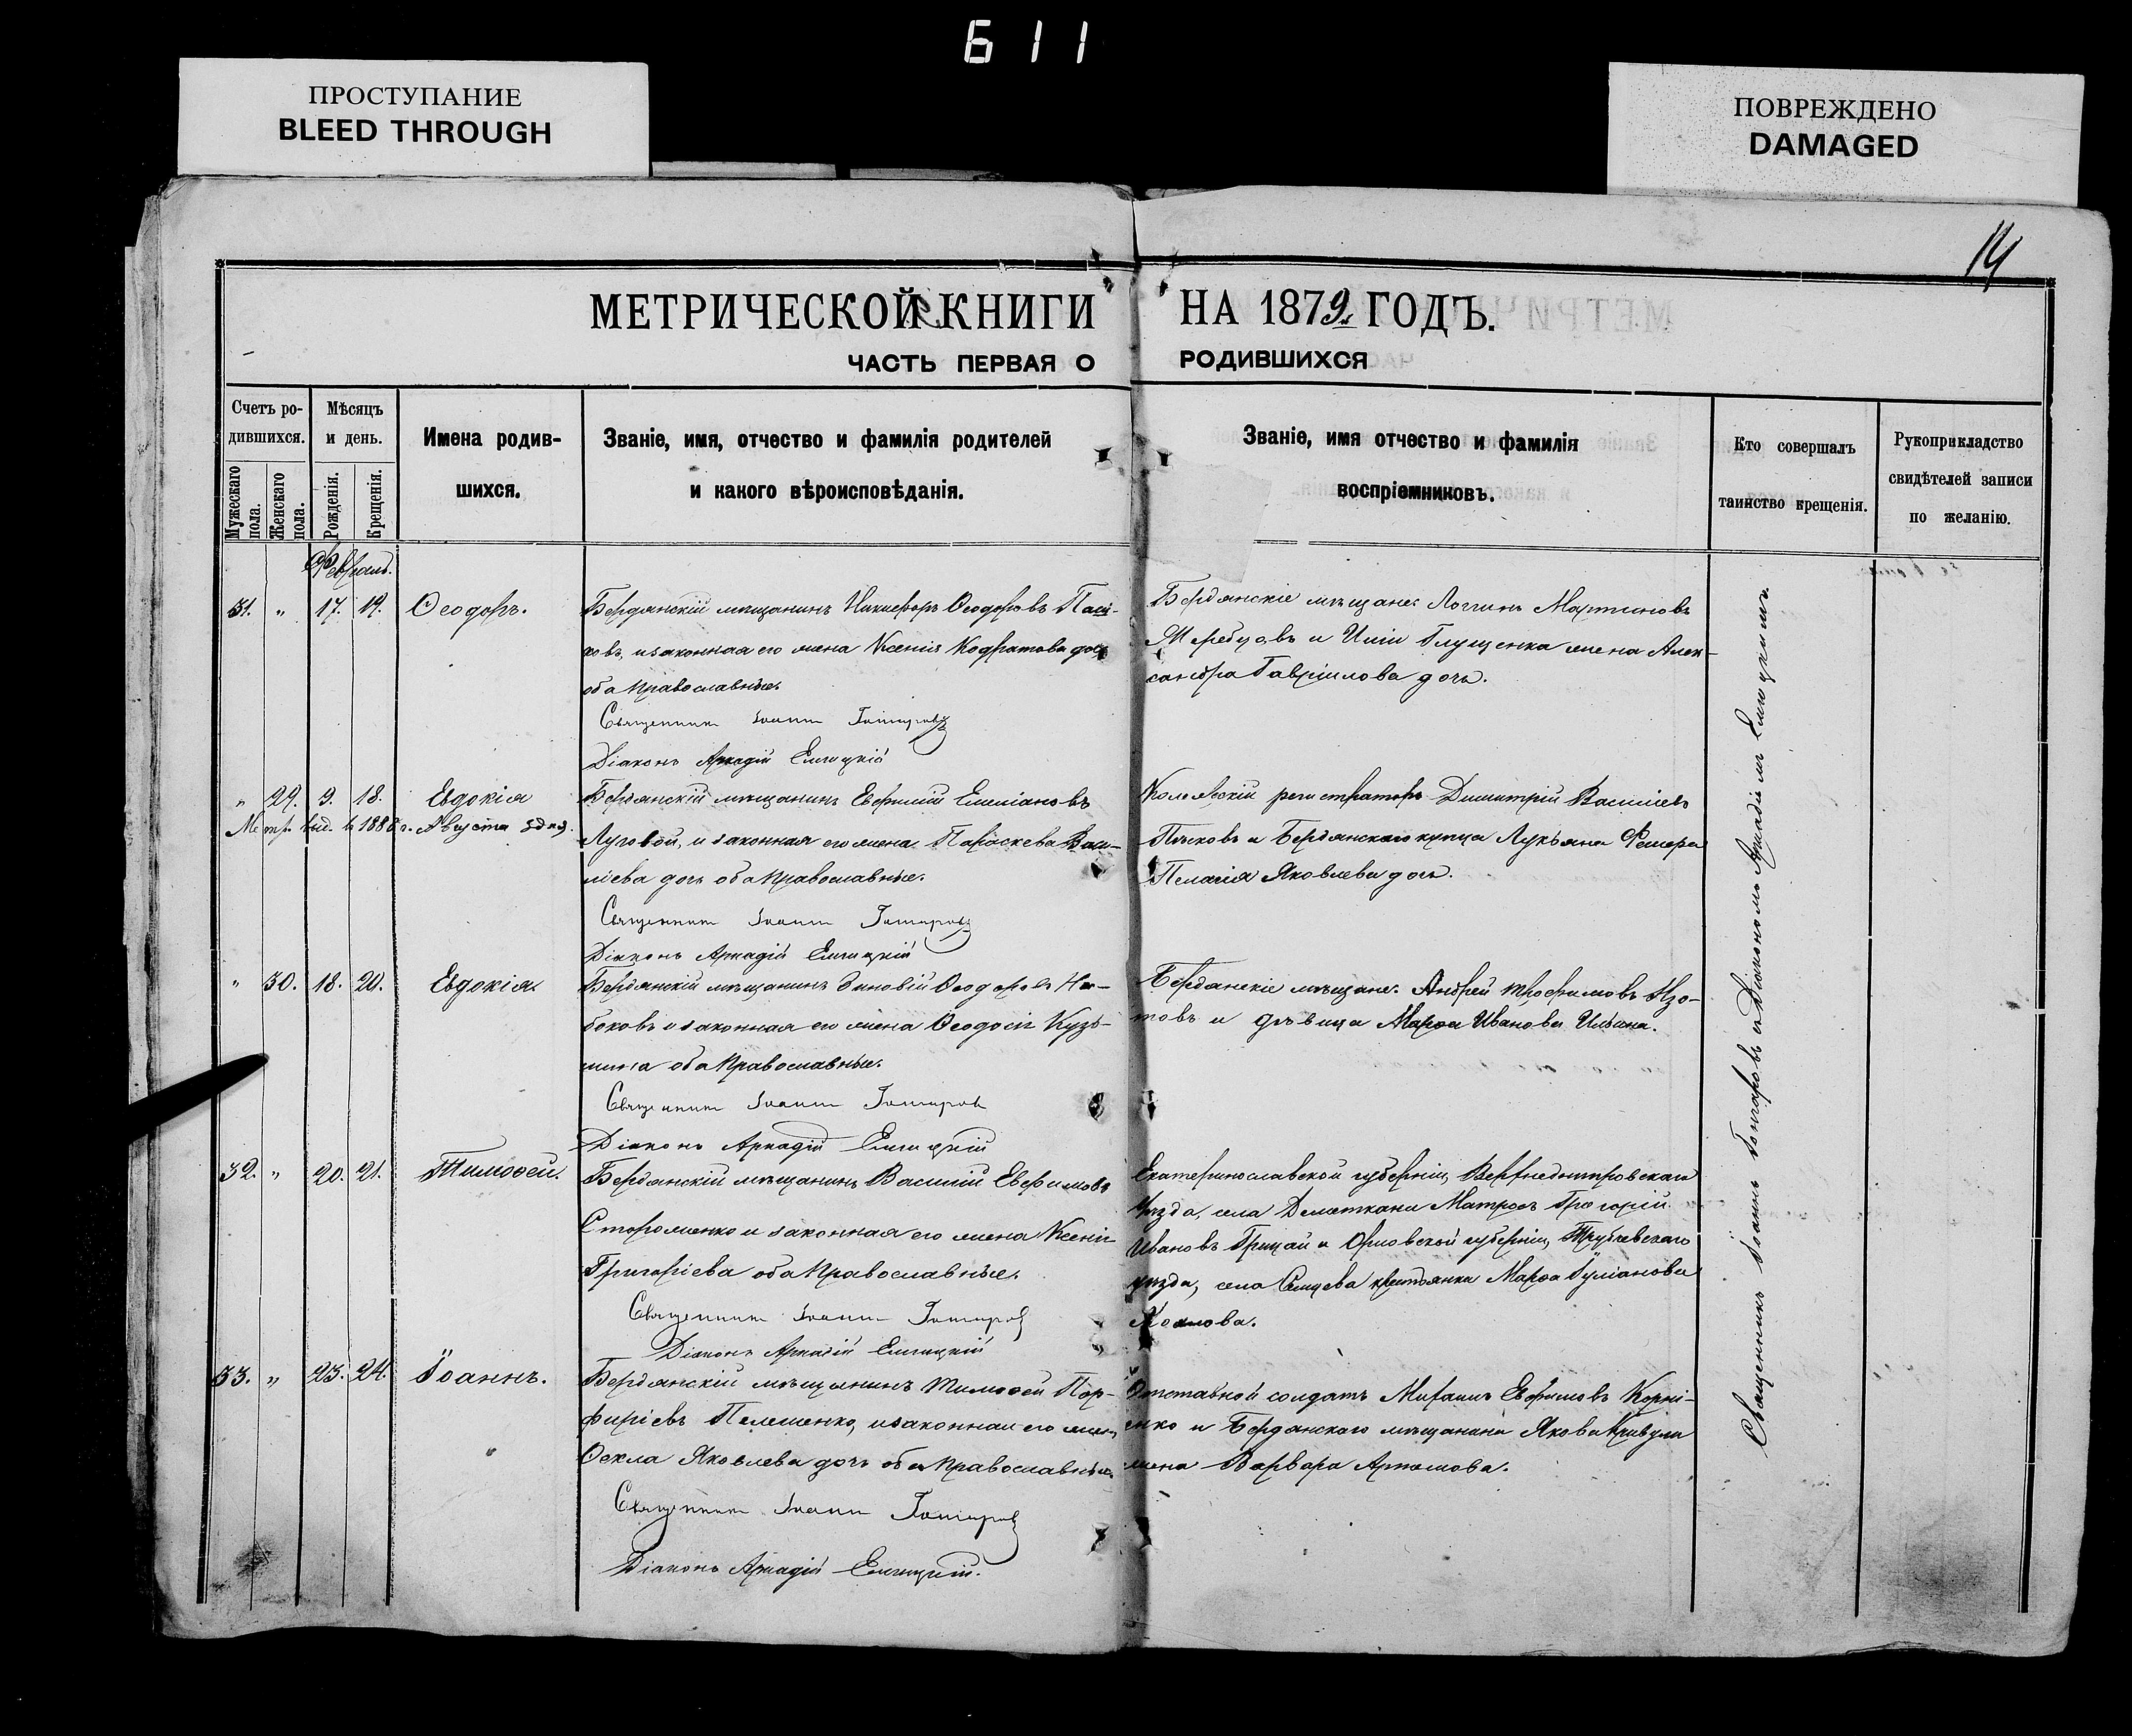 611
ПРОСТУПАНИЕ
BLEED THROUGH
ПОВРЕЖДЕНО
DAMAGED
14
МЕТРИЧЕСКОЙ КНИГИ НА 1879 ГОДЪ.
ЧАСТЬ ПЕРВАЯ О РОДИВШИХСЯ
Счетъ ро-
дившихся.
Мужескаго пола.
Женскаго пола.
Мѣсяцъ
и день.
Рожденія.
Крещенія.
Имена родив-
шихся.
Званіе, имя, отчество и фамилія родителей
и какого вѣроисповѣданія.
Званіе, имя отчество и фамилія
воспріемниковъ.
Кто совершалъ
таинство крещенія.
Рукоприкладство
свидѣтелей записи
по желанію.
Февраль.
31. " 17. 19. Ѳеодоръ.
Бердянскій мѣщанинъ Никифоръ Ѳеодоровъ
ковъ, и законная его жена Ксенія Кодратова доч
оба православные.
Священникъ Іоаннъ Гончаровъ
Діаконъ Аркадій Елицкій
Бердянскіе мѣщане: Логгинъ Мартиновъ
и Иліи Глущенка жена Алек-
сандра Гавріилова дочь.
" 29. 9. 18. Евдокія
Метр. выд. в 188 г. Августа
Бердянскій мѣщанинъ Евфимій Емеліановъ
Луговой, и законная его жена Параскева Васи-
ліева дочь оба православные.
Священникъ Іоаннъ Гончаровъ
Діаконъ Аркадій Елицкій
регистраторъ Димитрій Василіевъ
Пѣсковъ и Бердянскаго купца Лукьяна
Пелагія Яковлева дочь.
" 30. 18. 20. Евдокія.
Бердянскій мѣщанинъ Зиновій Ѳеодоровъ На-
боковъ и законная его жена Ѳеодосія Кузь-
мина оба православные.
Священникъ Іоаннъ Гончаровъ
Діаконъ Аркадій Елицкій
Бердянскіе мѣщане: Андрей Трофимовъ Изо-
товъ и дѣвица Марѳа Иванова Ильина.
32. " 20. 21. Тимоѳей.
Бердянскій мѣщанинъ Василій Евфимовъ
Стороженко и законная его жена Ксенія
Григоріева оба православные.
Священникъ Іоаннъ Гончаровъ
Діаконъ Аркадій Елицкій
Екатеринославской губерніи, Верхнеднѣпровскаго
уѣзда, села Деметкани Матросъ Григорій
Ивановъ Грицай и Орловской губерніи, Трубчевскаго
уѣзда, села крестьянка Марѳа Іуліанова
33. " 23. 24. Іоаннъ.
Бердянскій мѣщанинъ Тимоѳей Пор-
фиріевъ Пелешенко, и законная его жена
Ѳекла Яковлева дочь оба православные.
Священникъ Іоаннъ Гончаровъ
Діаконъ Аркадій Елицкій.
Отставной солдатъ Михаилъ Евфимовъ Корні-
енко и Бердянскаго мѣщанина Якова Кривули
жена Варвара Артемова.
Священникъ Іоаннъ Гончаровъ и Діакономъ Аркадіемъ Елицкимъ